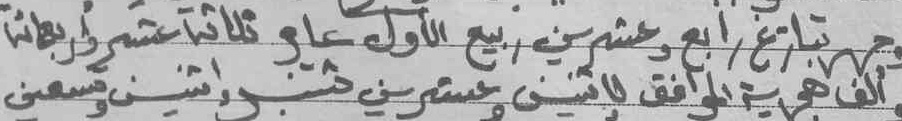 وجه بتاريخ رابع وعشرين ربيع الأول عام ثلاثة عشر وأربعمائة
وألف هجرية الموافق لاثنين وعشرين شتنبر اثنين وتسعين